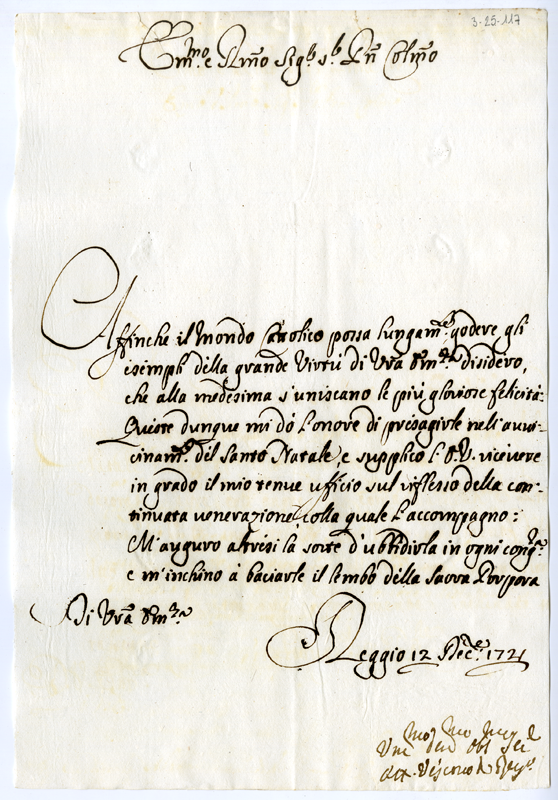 3-25-117
Em.mo e Rmo Sig.r S.r Pn Colmo
Affinche il Mondo Cattolico possa lungam.te godere gli
esempli della grande Virtù di Vra Em.za disidero,
che alla medesima s'uniscano le più gloriose felicità:
Queste dunque mi dò l'onore di presagirle nell'auui-
cinam.to del Santo Natale, e supplico l'E.V. riceuere
in grado il mio tenue ufficio sul riflesso della con-
tinuata uenerazione, colla quale l'accompagno:
M'auguro altresi la sorte d'ubbidirla in ogni cong.a
e m'inchino à baciarle il lembo della Sacra Porpora
Di Vra Em.za
Reggio 12 Dec.e 1721
Vescouo